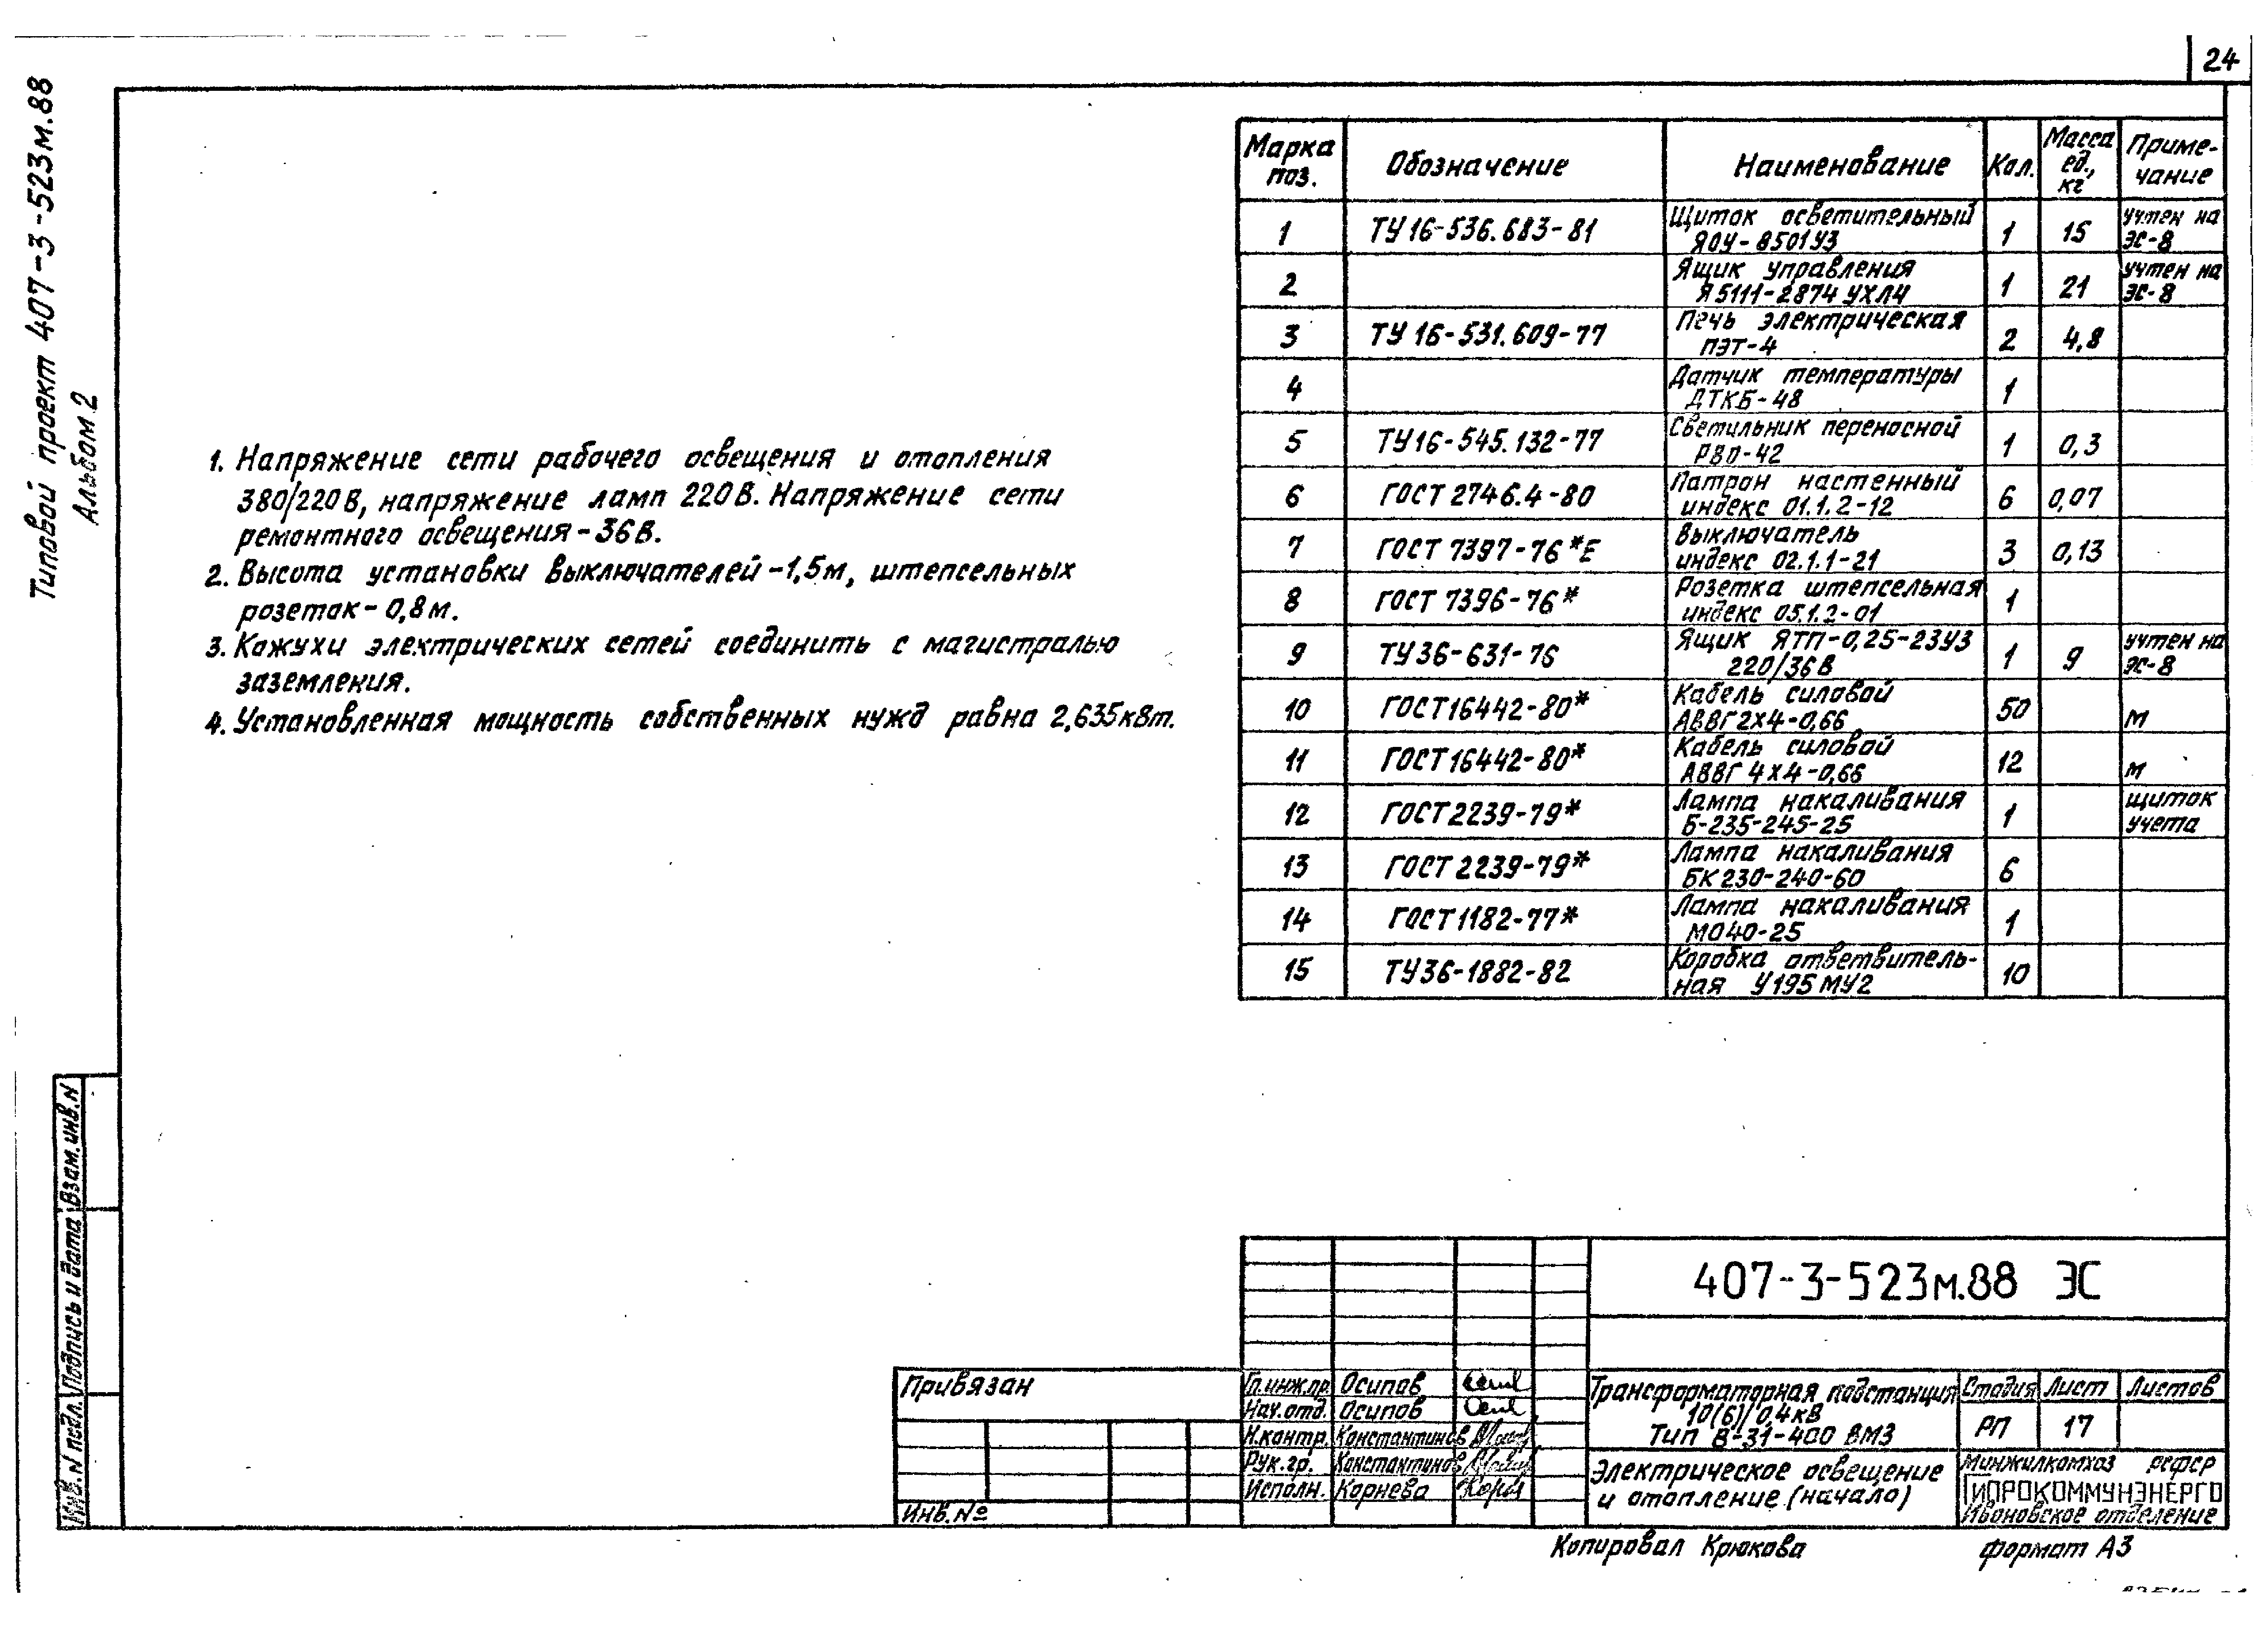 24
Типовой проект 407-3-523м.88
Альбом 2
1. Напряжение сети рабочего освещения и отопления
380/220В, напряжение ламп 220В. Напряжение сети
ремонтного освещения-36В.
2. Высота установки выключателей-1,5м, штепсельных
розеток-0,8м.
3. Кожухи электрических сетей соединить с магистралью
заземления.
4. Установленная мощность собственных нужд равна 2,635кВт.
Марка поз. Обозначение Наименование Кол. Масса ед., кг Приме-чание
1 ТУ16-536.683-81 Щиток осветительный ЯОУ-8501У3 1 15 учтен на ЭС-8
2 Ящик управления Я5111-2874 УХЛ4 1 21 учтен на ЭС-8
3 ТУ 16-531.609-77 Печь электрическая ПЭТ-4 2 4,8
4 Датчик температуры ДТКБ-48 1
5 ТУ16-545.132-77 Светильник переносной РВО-42 1 0,3
6 ГОСТ 2746.4-80 Патрон настенный индекс 01.1.2-12 6 0,07
7 ГОСТ 7397-76*Е Выключатель индекс 02.1.1-21 3 0,13
8 ГОСТ 7396-76* Розетка штепсельная индекс 05.1.2-01 1
9 ТУ36-631-76 Ящик ЯТП-0,25-23У3 220/36В 1 9 учтен на ЭС-8
10 ГОСТ16442-80* Кабель силовой АВВГ2х4-0,66 50 м
11 ГОСТ16442-80* Кабель силовой АВВГ 4х4-0,66 12 м
12 ГОСТ2239-79* Лампа накаливания Б-235-245-25 1 щиток учета
13 ГОСТ 2239-79* Лампа накаливания БК230-240-60 6
14 ГОСТ1182-77* Лампа накаливания МО40-25 1
15 ТУ36-1882-82 Коробка ответвитель-ная У195МУ2 10
Инв.N подл. Подпись и дата Взам.инв.N
407-3-523м.88 ЭС
Привязан
Инв.№
Гл.инж.пр. Осипов
Нач.отд. Осипов
Н.контр. Константинов
Рук.гр. Константинов
Исполн. Корнева
Трансформаторная подстанция
10(6)/0,4кВ
Тип В-31-400 ВМ3
Стадия Лист Листов
РП 17
Электрическое освещение
и отопление (начало)
Минжилкомхоз РСФСР
ГИПРОКОММУНЭНЕРГО
Ивановское отделение
Копировал Крюкова
формат А3